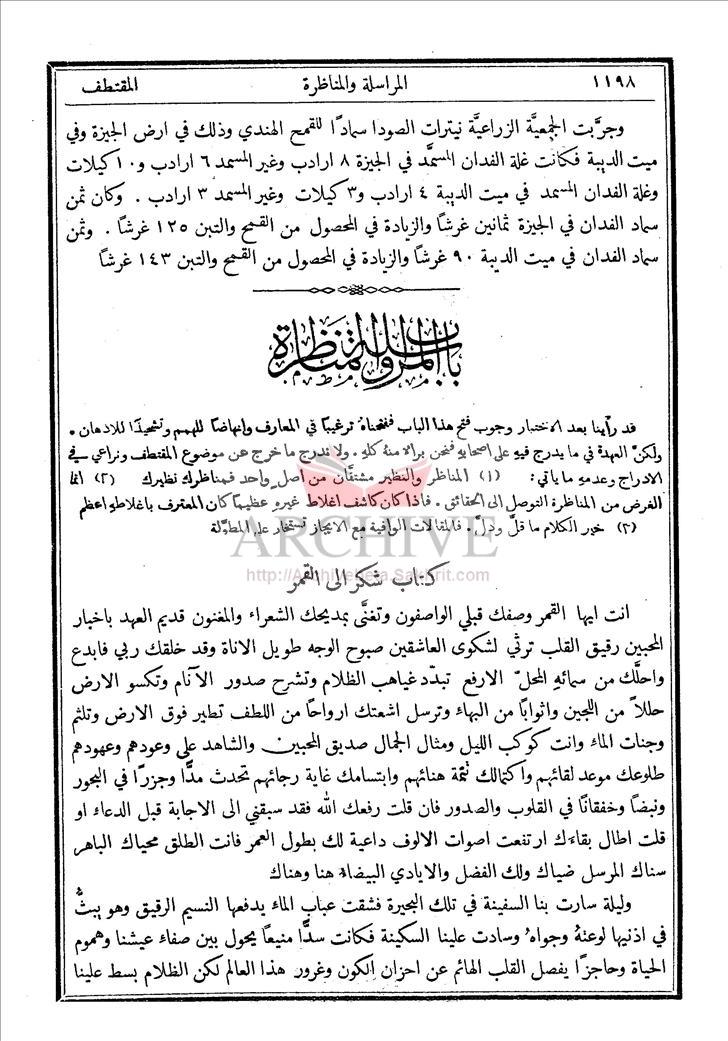 ١١٩٨ المراسلة والمناظرة المقتطف
وجرَّبت الجمعيَّة الزراعيَّة نيترات الصودا سمادًا للقمح الهندي وذلك في ارض الجيزة وفي
ميت الديبة فكانت غلة الفدان المسمَّد في الجيزة ٨ ارادب وغير المسمد ٦ ارادب و١٠ كيلات
وغلة الفدان المسمد في ميت الديبة ٤ ارادب و٣ كيلات وغير المسمد ٣ ارادب . وكان ثمن
سماد الفدان في الجيزة ثمانين غرشًا والزيادة في المحصول من القمح والتبن ١٢٥ غرشًا . وثمن
سماد الفدان في ميت الديبة ٩٠ غرشًا والزيادة في المحصول من القمح والتبن ١٤٣ غرشًا
باب المراسلة والمناظرة
قد رأينا بعد الاختبار وجوب فتح هذا الباب ففتحناه ترغيبًا في المعارف وإنهاضًا للهمم وتشحيذًا للاذهان .
ولكنَّ العهدة في ما يدرج فيهِ على اصحابهِ فنحن برالا منه كلهِ . ولا ندرج ما خرج عن موضوع المقتطف ونراعي في
الادراج وعدمهِ ما ياتي : (١) المناظر والنظير مشتقَّان من اصل واحد فمناظرك نظيرك (٢) انما
الغرض من المناظرة التوصل الى الحقائق . فاذا كان كاشف اغلاط غيرهِ عظيمًا كان المعترف باغلاطهِ اعظم
(٣) خير الكلام ما قلَّ ودلَّ . فالمقالات الوافية مع الايجاز تستخار على المطوَّلة
ARCHIVE
http://Archivebeta.Sakhrit.com
كتاب شكر الى القمر
انت ايها القمر وصفك قبلي الواصفون وتغنَّى بمديحك الشعراء والمغنون قديم العهد باخبار
المحبين رقيق القلب ترثي لشكوى العاشقين صبوح الوجه طويل الاناة وقد خلقك ربي فابدع
واحلَّك من سمائهِ المحلَّ الارفع تبدّد غياهب الظلام وتشرح صدور الآنام وتكسو الارض
حللاً من اللجين واثوابًا من البهاء وترسل اشعتك ارواحًا من اللطف تطير فوق الارض وتلثم
وجنات الماء وانت كوكب الليل ومثال الجمال صديق المحبين والشاهد على وعودهم وعهودهم
طلوعك موعد لقائهم واكتمالك تتمة هنائهم وابتسامك غاية رجائهم تحدث مدًّا وجزرًا في البحور
ونبضًا وخفقانًا في القلوب والصدور فان قلت رفعك الله فقد سبقني الى الاجابة قبل الدعاء او
قلت اطال بقاءك ارتفعت اصوات الالوف داعية لك بطول العمر فانت الطلق محياك الباهر
سناك المرسل ضياك ولك الفضل والايادي البيضاء هنا وهناك
وليلة سارت بنا السفينة في تلك البحيرة فشقت عباب الماء يدفعها النسيم الرقيق وهو يبثُّ
في اذنيها لوعتهُ وجواهُ وسادت علينا السكينة فكانت سدًّا منيعًا يحول بين صفاء عيشنا وهموم
الحياة وحاجزًا يفصل القلب الهائم عن احزان الكون وغرور هذا العالم لكن الظلام بسط علينا